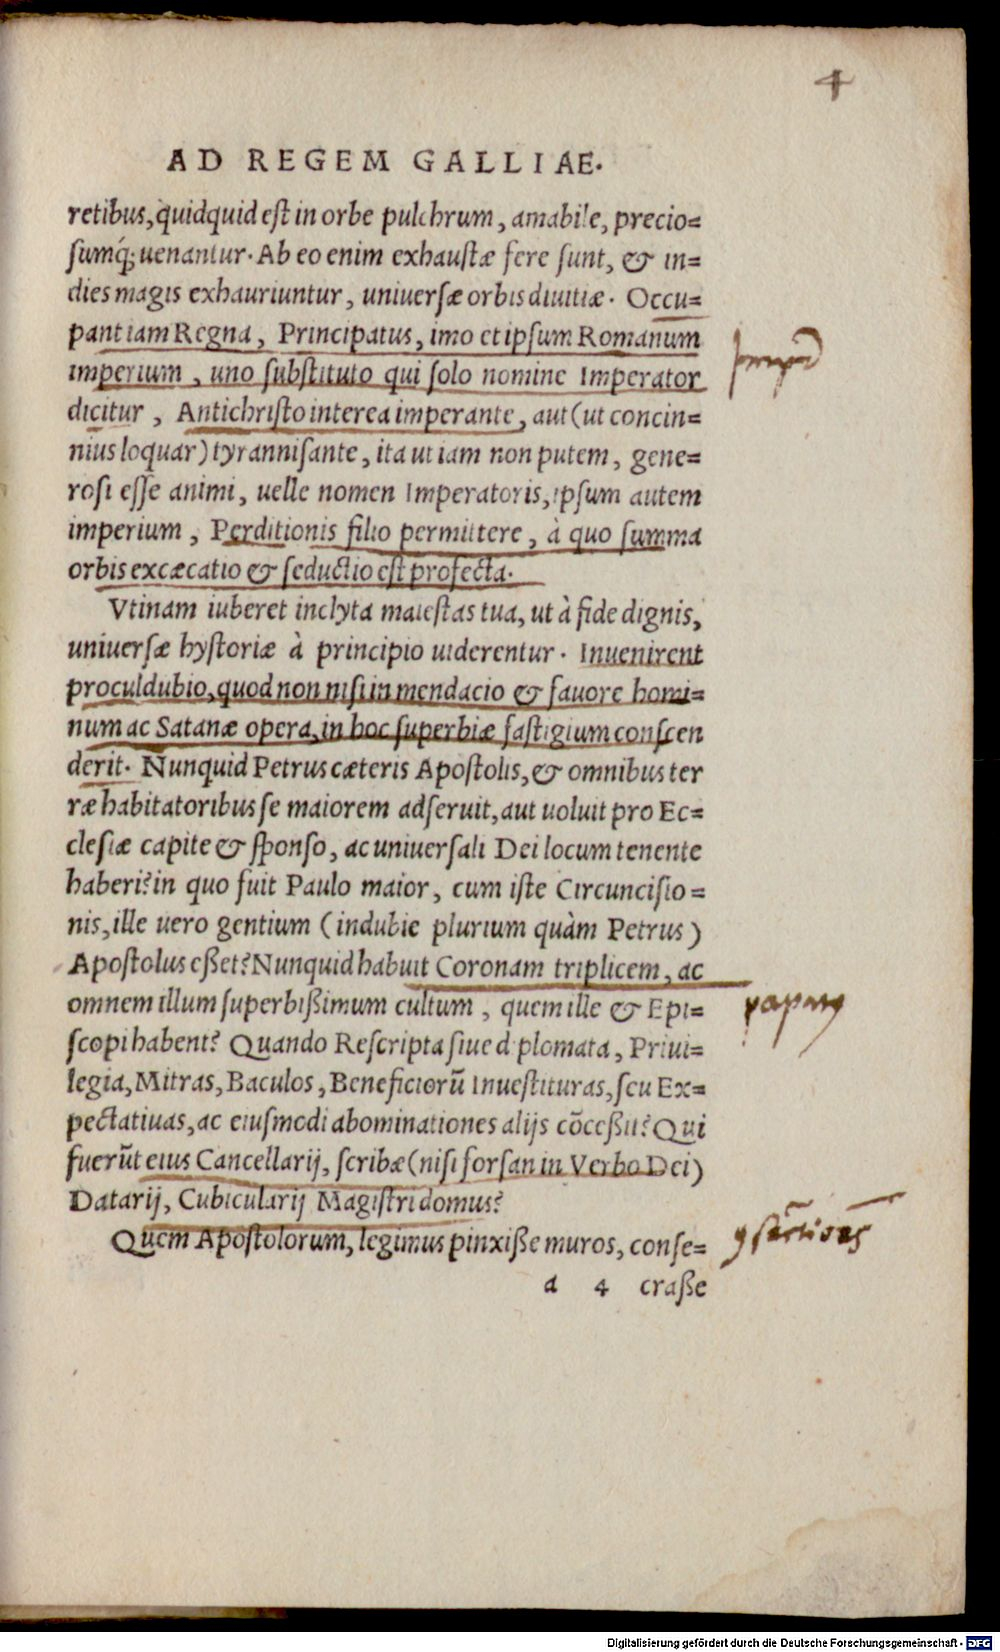 4
AD REGEM GALLIAE.
retibus, quidquid est in orbe pulchrum, amabile, precio=
sumq́; uenantur. Ab eo enim exhaustæ fere sunt, & in=
dies magis exhauriuntur, uniuersæ orbis diuitiæ. Occu=
pant iam Regna, Principatus, imo et ipsum Romanum
imperium, uno substituto qui solo nomine Imperator
dicitur, Antichristo interea imperante, aut (ut concin=
nius loquar) tyrannisante, ita ut iam non putem, gene=
rosi esse animi, uelle nomen Imperatoris, ipsum autem
imperium, Perditionis filio permittere, à quo summa
orbis excæcatio & seductio est profecta.
Vtinam iuberet inclyta maiestas tua, ut à fide dignis,
uniuersæ hystoriæ à principio uiderentur. Inuenirent
proculdubio, quod non nisi in mendacio & fauore homi=
num ac Satanæ opera, in hoc superbiæ fastigium conscen
derit. Nunquid Petrus cæteris Apostolis, & omnibus ter
ræ habitatoribus se maiorem adseruit, aut uoluit pro Ec=
clesiæ capite & sponso, ac uniuersali Dei locum tenente
haberi? in quo fuit Paulo maior, cum iste Circuncisio=
nis, ille uero gentium (indubie plurium quàm Petrus)
Apostolus eßet? Nunquid habuit Coronam triplicem, ac
omnem illum superbißimum cultum, quem ille & Epi=
scopi habent? Quando Rescripta siue diplomata, Priui=
legia, Mitras, Baculos, Beneficiorũ Inuestituras, seu Ex=
pectatiuas, ac eiusmodi abominationes alijs cõceßit? Qui
fuerũt eius Cancellarij, scribæ (nisi forsan in Verbo Dei)
Datarij, Cubicularij Magistri domus?
Quem Apostolorum, legimus pinxiße muros, conse=
a 4 craße
Digitalisierung gefördert durch die Deutsche Forschungsgemeinschaft - DFG